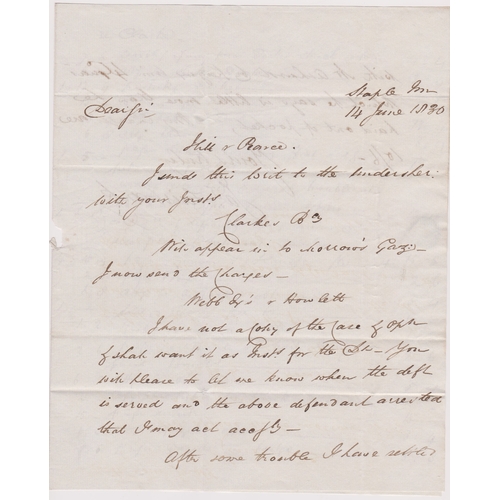 Staple Inn
14 June 1830
Dear Sir
Hill v Pearce.
I send this Writ to the undersher:
with your Insts
Clarkes Bcy
Will appear in to Morrow's Gaz:—
I now send the Charges—
Webb Exs v Howlett
I have not a Copy of the Case & Opn
& shall want it as Insts for the Dn— You
will please to let me know when the deft
is served and the above defendant arrested
that I may act accgly—
After some trouble I have settled